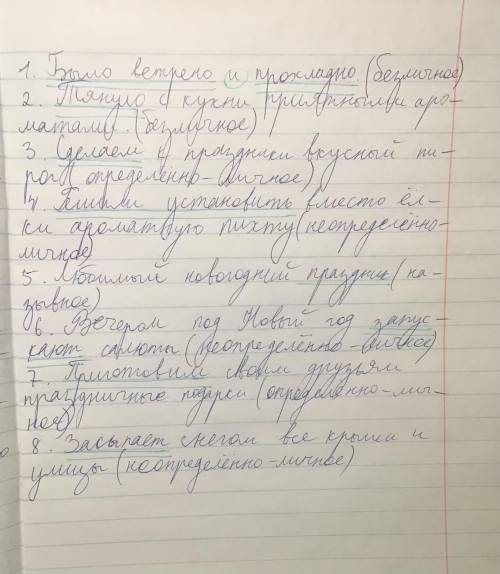 1. Было ветрено и прохладно. (безличное)
2. Тянуло с кухни приятными аро-
матами. (безличное)
3. Сделаем к праздники вкусный пи-
рог (определённо-личное)
4. Решили установить вместо ёл-
ки ароматную пихту (неопределённо-
личное)
5. Любимый новогодний праздник (на-
зывное)
6. Вечером под Новый год запус-
кают салюты (неопределённо-личное)
7. Приготовим своим друзьям
праздничные подарки (определённо-лич-
ное)
8. Засыпает снегом все крыши и
улицы (неопределённо-личное)